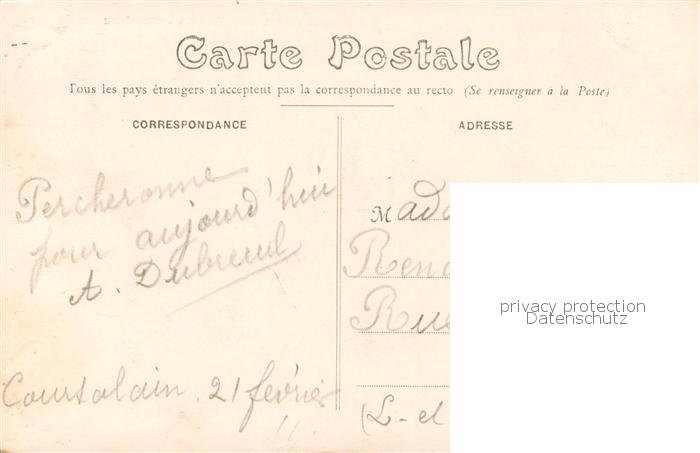 Carte Postale
Tous les pays étrangers n'acceptent pas la correspondance au recto (Se renseigner a la Poste)
CORRESPONDANCE
ADRESSE
Percheronne
pour aujourd'hui
A. Dubreuil
Courtalain, 21 février
Mada
Rena
Rue
(L-et
privacy protection
Datenschutz